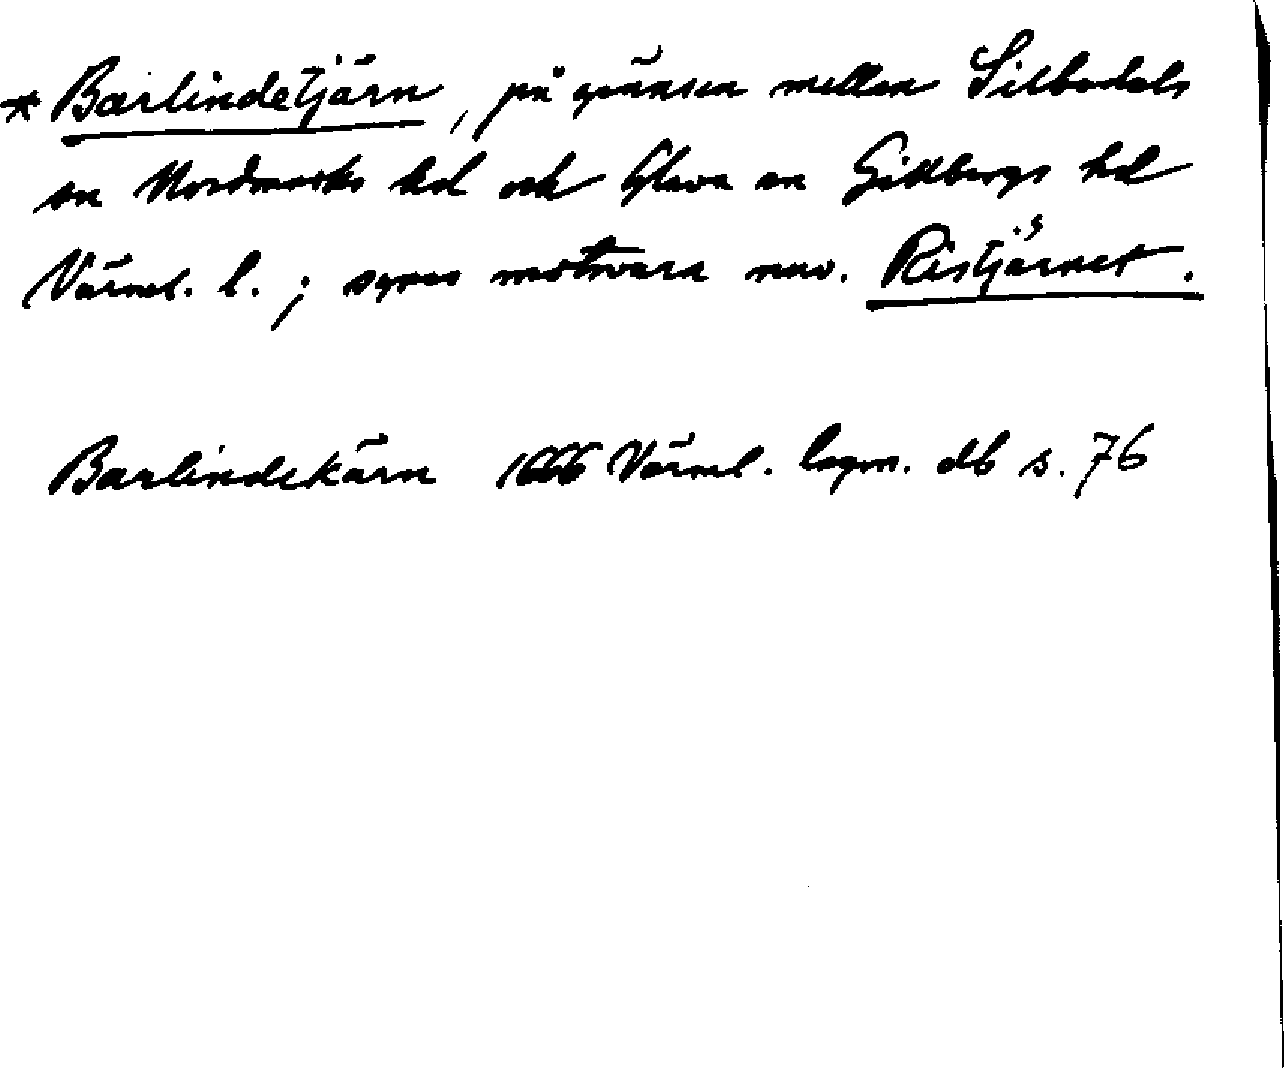 * Barlindetjärn, på gränsen mellan Silbodals
sn Nordmarks hd och Glava sn Gillbergs hd
Värml. l.; synes motsvara nuv. Ristjärnet.
Barlindekärn 1666 Värml. lagm. db s. 76